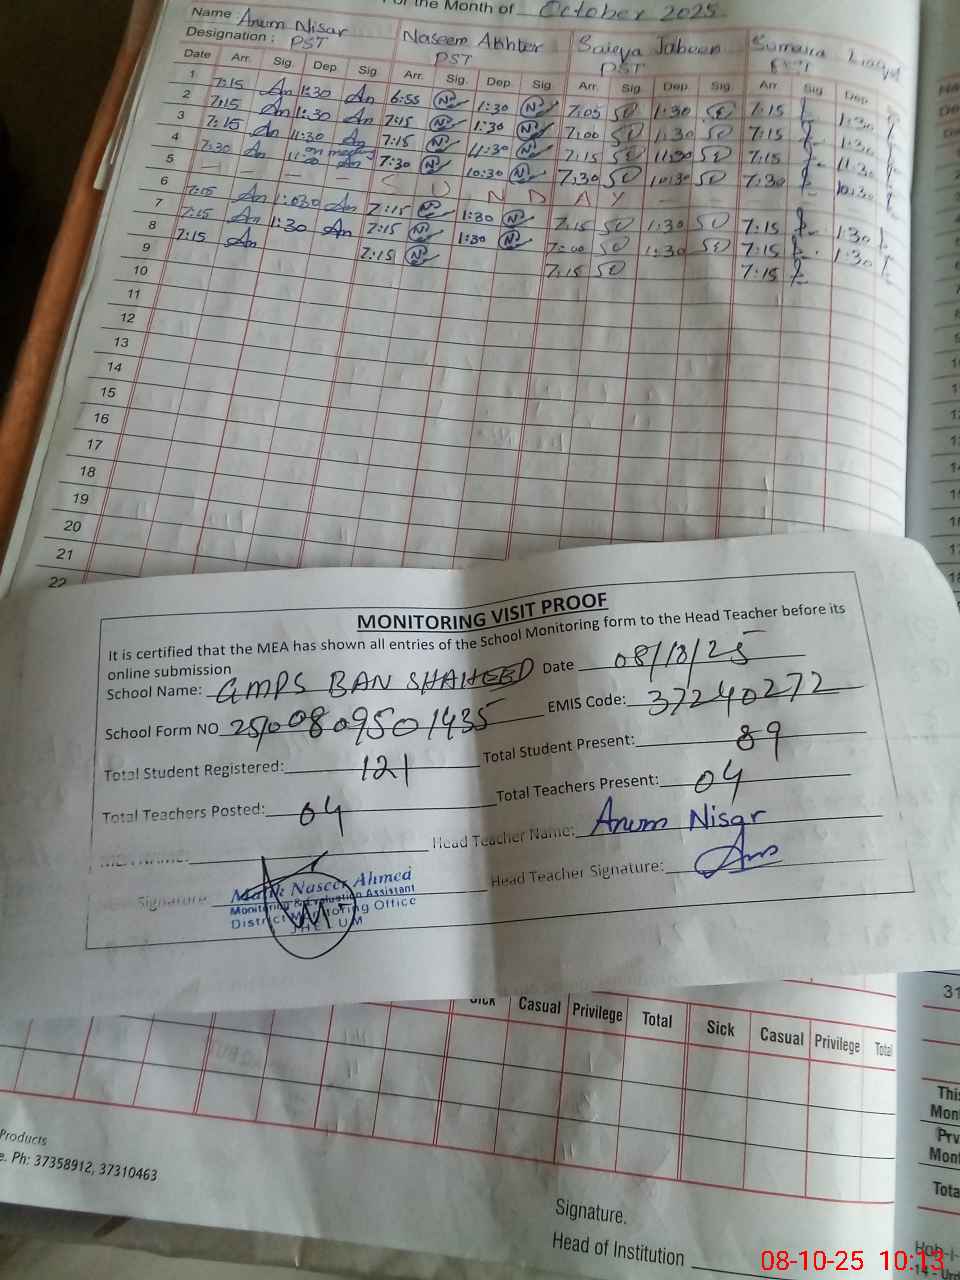 For the Month of October 2025
Name: Anum Nisar Naseem Akhter Saieya Jabeen Sumaira
Designation: PST PST PST PST
Date Arr. Sig. Dep. Sig. Arr. Sig. Dep. Sig. Arr. Sig. Dep. Sig. Arr. Sig. Dep.
1 7:15 An 1:30 An 6:55 N 1:30 N 7:05 SJ 1:30 SJ 7:15 1:30
2 7:15 An 1:30 An 7:15 N 1:30 N 7:00 SJ 1:30 SJ 7:15 1:30
3 7:15 An 11:30 An 7:15 N 11:30 N 7:15 SJ 11:30 SJ 7:15 11:30
4 7:30 An on meeting An 7:30 N 10:30 N 7:30 SJ 10:30 SJ 7:30 10:30
5 S U N D A Y
6 7:15 An 1:30 An 7:15 N 1:30 N 7:15 SJ 1:30 SJ 7:15 1:30
7 7:15 An 1:30 An 7:15 N 1:30 N 7:00 SJ 1:30 SJ 7:15 1:30
8 7:15 An 7:15 N 7:15 SJ 7:15
9
10
11
12
13
14
15
16
17
18
19
20
21
22
MONITORING VISIT PROOF
It is certified that the MEA has shown all entries of the School Monitoring form to the Head Teacher before its
online submission
School Name: GMPS BAN SHAHEED Date 08/10/25
School Form NO 25100809501435 EMIS Code: 37240272
Total Student Registered: 121 Total Student Present: 89
Total Teachers Posted: 04 Total Teachers Present: 04
MEA NAME: Head Teacher Name: Anum Nisar
Signature: Head Teacher Signature: Ans
Malik Naseer Ahmed
Monitoring & Evaluation Assistant
District Monitoring Office
JHELUM
Sick Casual Privilege Total Sick Casual Privilege Total
Products
e. Ph: 37358912, 37310463
Signature.
Head of Institution
31
This
Mon
Prv
Mont
Tota
08-10-25 10:13